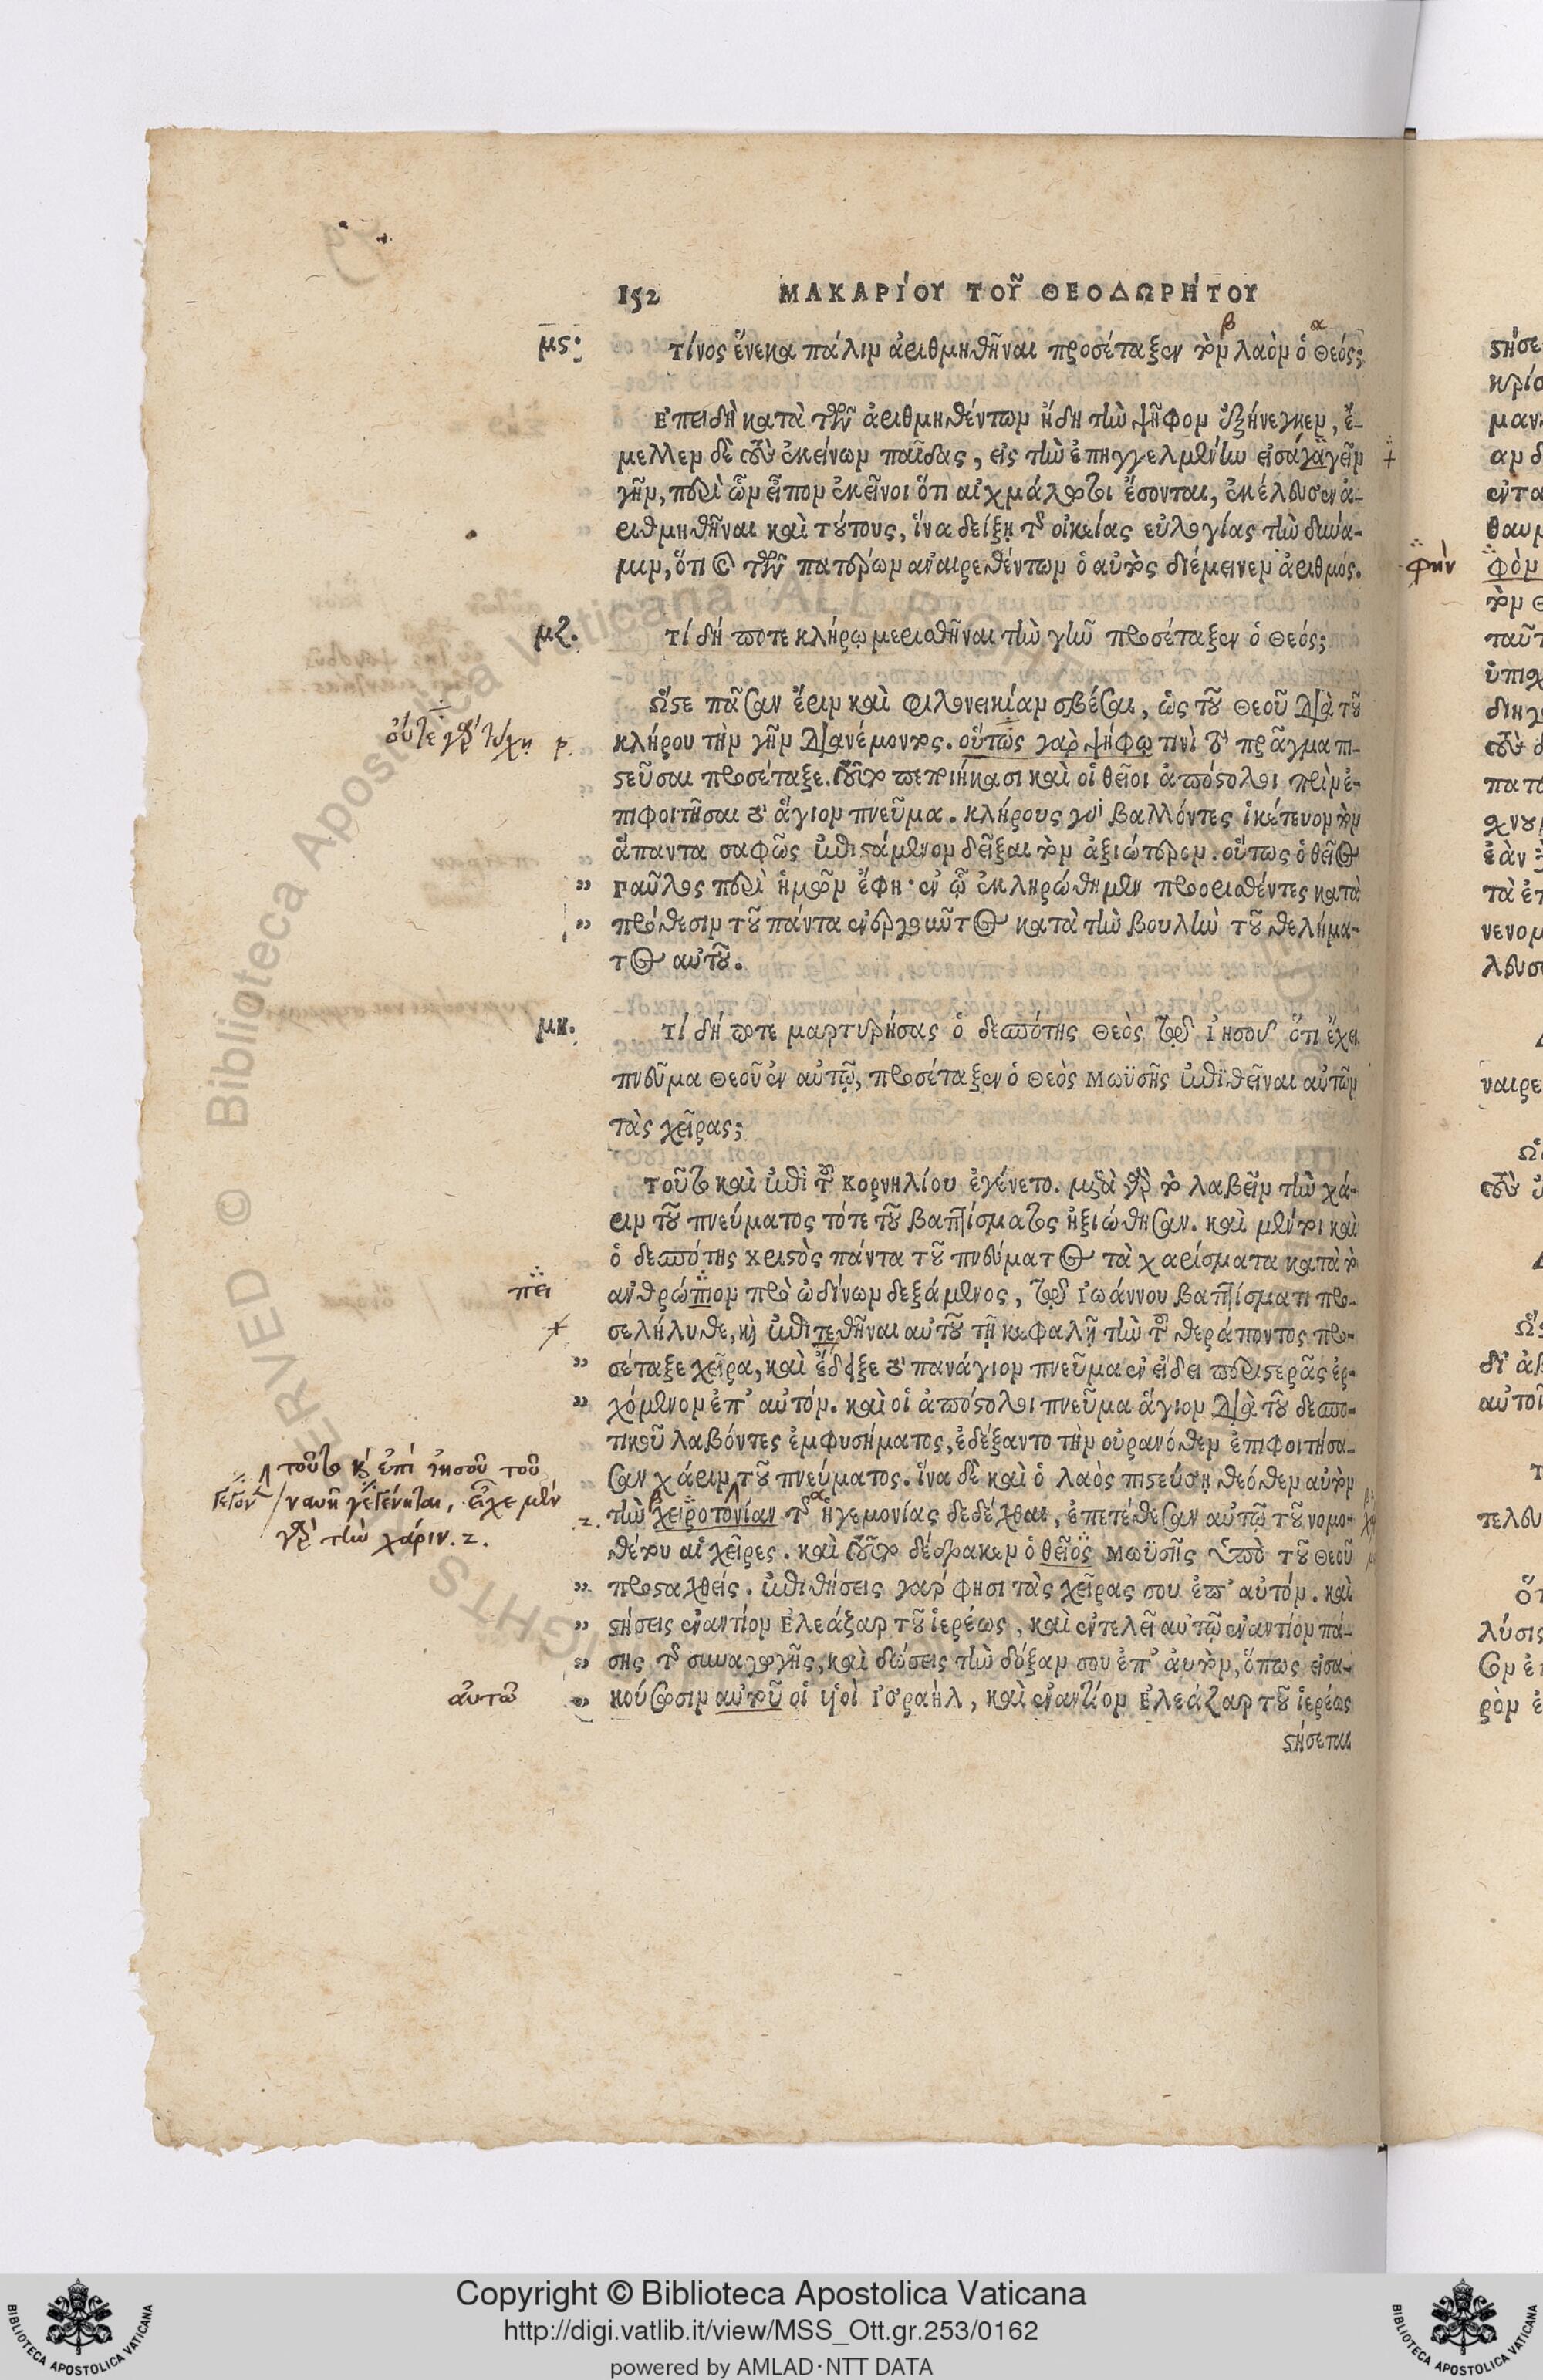 152 ΜΑΚΑΡΙΟΥ ΤΟΥ ΘΕΟΔΩΡΗΤΟΥ
μς· τίνος ἕνεκα πάλιν ἀριθμηθῆναι προσέταξεν τὸν λαὸν ὁ Θεός;
Ἐπειδὴ κατὰ τῶν ἀριθμηθέντων ἤδη τὴν ψῆφον ἐξήνεγκεν, ἔ-
μελλεν δὲ τοὺς ἐκείνων παῖδας, εἰς τὴν ἐπηγγελμένην εἰσάγαγεῖν
γῆν, περὶ ὧν εἶπον ἐκεῖνοι ὅτι αἰχμάλωτοι ἔσονται, ἐκέλευσεν ἀ-
ριθμηθῆναι καὶ τούτους, ἵνα δείξῃ τῆς οἰκείας εὐλογίας τὴν δύνα-
μιν, ὅτι καὶ τῶν πατέρων ἀναιρεθέντων ὁ αὐτὸς διέμεινεν ἀριθμός.
μζ. τί δή ποτε κλήρῳ μερισθῆναι τὴν γῆν προσέταξεν ὁ Θεός;
Ὥστε πᾶσαν ἔριν καὶ φιλονεικίαν σβέσαι, ὡς τοῦ Θεοῦ διὰ τοῦ
οὔτε γὰρ τύχῃ
κλήρου τὴν γῆν διανέμοντος. οὕτως γὰρ ψήφῳ τινὶ τὸ πρᾶγμα πι-
στεῦσαι προσέταξε. τοῦτο πεποιήκασι καὶ οἱ θεῖοι ἀπόστολοι πρὶν ἐ-
πιφοιτῆσαι τὸ ἅγιον πνεῦμα. κλήρους γὰρ βαλλόντες ἱκέτευον τὸν
ἅπαντα σαφῶς ἐπιστάμενον δεῖξαι τὸν ἀξιώτερον. οὕτως ὁ θεῖος
" Παῦλος περὶ ἡμῶν ἔφη· ἐν ᾧ ἐκληρώθημεν προορισθέντες κατὰ
" πρόθεσιν τοῦ πάντα ἐνεργοῦντος κατὰ τὴν βουλὴν τοῦ θελήμα-
τος αὐτοῦ.
μη. τί δή ποτε μαρτυρήσας ὁ δεσπότης Θεὸς τῷ Ἰησοῦ ὅτι ἔχει
πνεῦμα Θεοῦ ἐν αὐτῷ, προσέταξεν ὁ Θεὸς Μωϋσῆς ἐπιθεῖναι αὐτῷ
τὰς χεῖρας;
Τοῦτο καὶ ἐπὶ τοῦ Κορνηλίου ἐγένετο. μετὰ γὰρ τὸ λαβεῖν τὴν χά-
ριν τοῦ πνεύματος τότε τοῦ βαπτίσματος ἠξιώθησαν. καὶ μέντοι καὶ
ὁ δεσπότης Χριστὸς πάντα τοῦ πνεύματος τὰ χαρίσματα κατὰ τὸ
πει
ἀνθρώπιον πρὸ ὠδίνων δεξάμενος, τῷ Ἰωάννου βαπτίσματι προ-
σελήλυθε, καὶ ἐπιτεθῆναι αὐτοῦ τῇ κεφαλῇ τὴν τοῦ θεράποντος προ-
" σέταξε χεῖρα, καὶ ἔδειξε τὸ πανάγιον πνεῦμα ἐν εἴδει περιστερᾶς ἐρ-
" χόμενον ἐπ' αὐτόν. καὶ οἱ ἀπόστολοι πνεῦμα ἅγιον διὰ τοῦ δεσπο-
τικοῦ λαβόντες ἐμφυσήματος, ἐδέξαντο τὴν οὐρανόθεν ἐπιφοιτήσα-
τοῦτο καὶ ἐπὶ ἰησοῦ τοῦ
ναυῆ γεγένηται, εἶχε μὲν
γὰρ τὴν χάριν. 2.
σαν χάριν τοῦ πνεύματος. ἵνα δὲ καὶ ὁ λαὸς πιστεύσῃ θεόθεν αὐτὸν
τὴν χειροτονίαν τῆς ἡγεμονίας δεδέχθαι, ἐπετέθεσαν αὐτῷ τοῦ νομο-
θέτου αἱ χεῖρες. καὶ τοῦτο δέδρακεν ὁ θεῖος Μωϋσῆς ὑπὸ τοῦ Θεοῦ
" προσταχθείς. ἐπιθήσεις γάρ φησι τὰς χεῖρας σου ἐπ' αὐτόν. καὶ
" στήσεις ἐναντίον Ἐλεάζαρ τοῦ ἱερέως, καὶ ἐντελεῖ αὐτῷ ἐναντίον πά-
" σης τῆς συναγωγῆς, καὶ δώσεις τὴν δόξαν σου ἐπ' αὐτόν, ὅπως εἰσα-
αὐτῶ
" κούσωσιν αὐτοῦ οἱ υἱοὶ Ἰσραὴλ, καὶ ἐναντίον Ἐλεάζαρ τοῦ ἱερέως
στήσεται
Copyright © Biblioteca Apostolica Vaticana
http://digi.vatlib.it/view/MSS_Ott.gr.253/0162
powered by AMLAD·NTT DATA